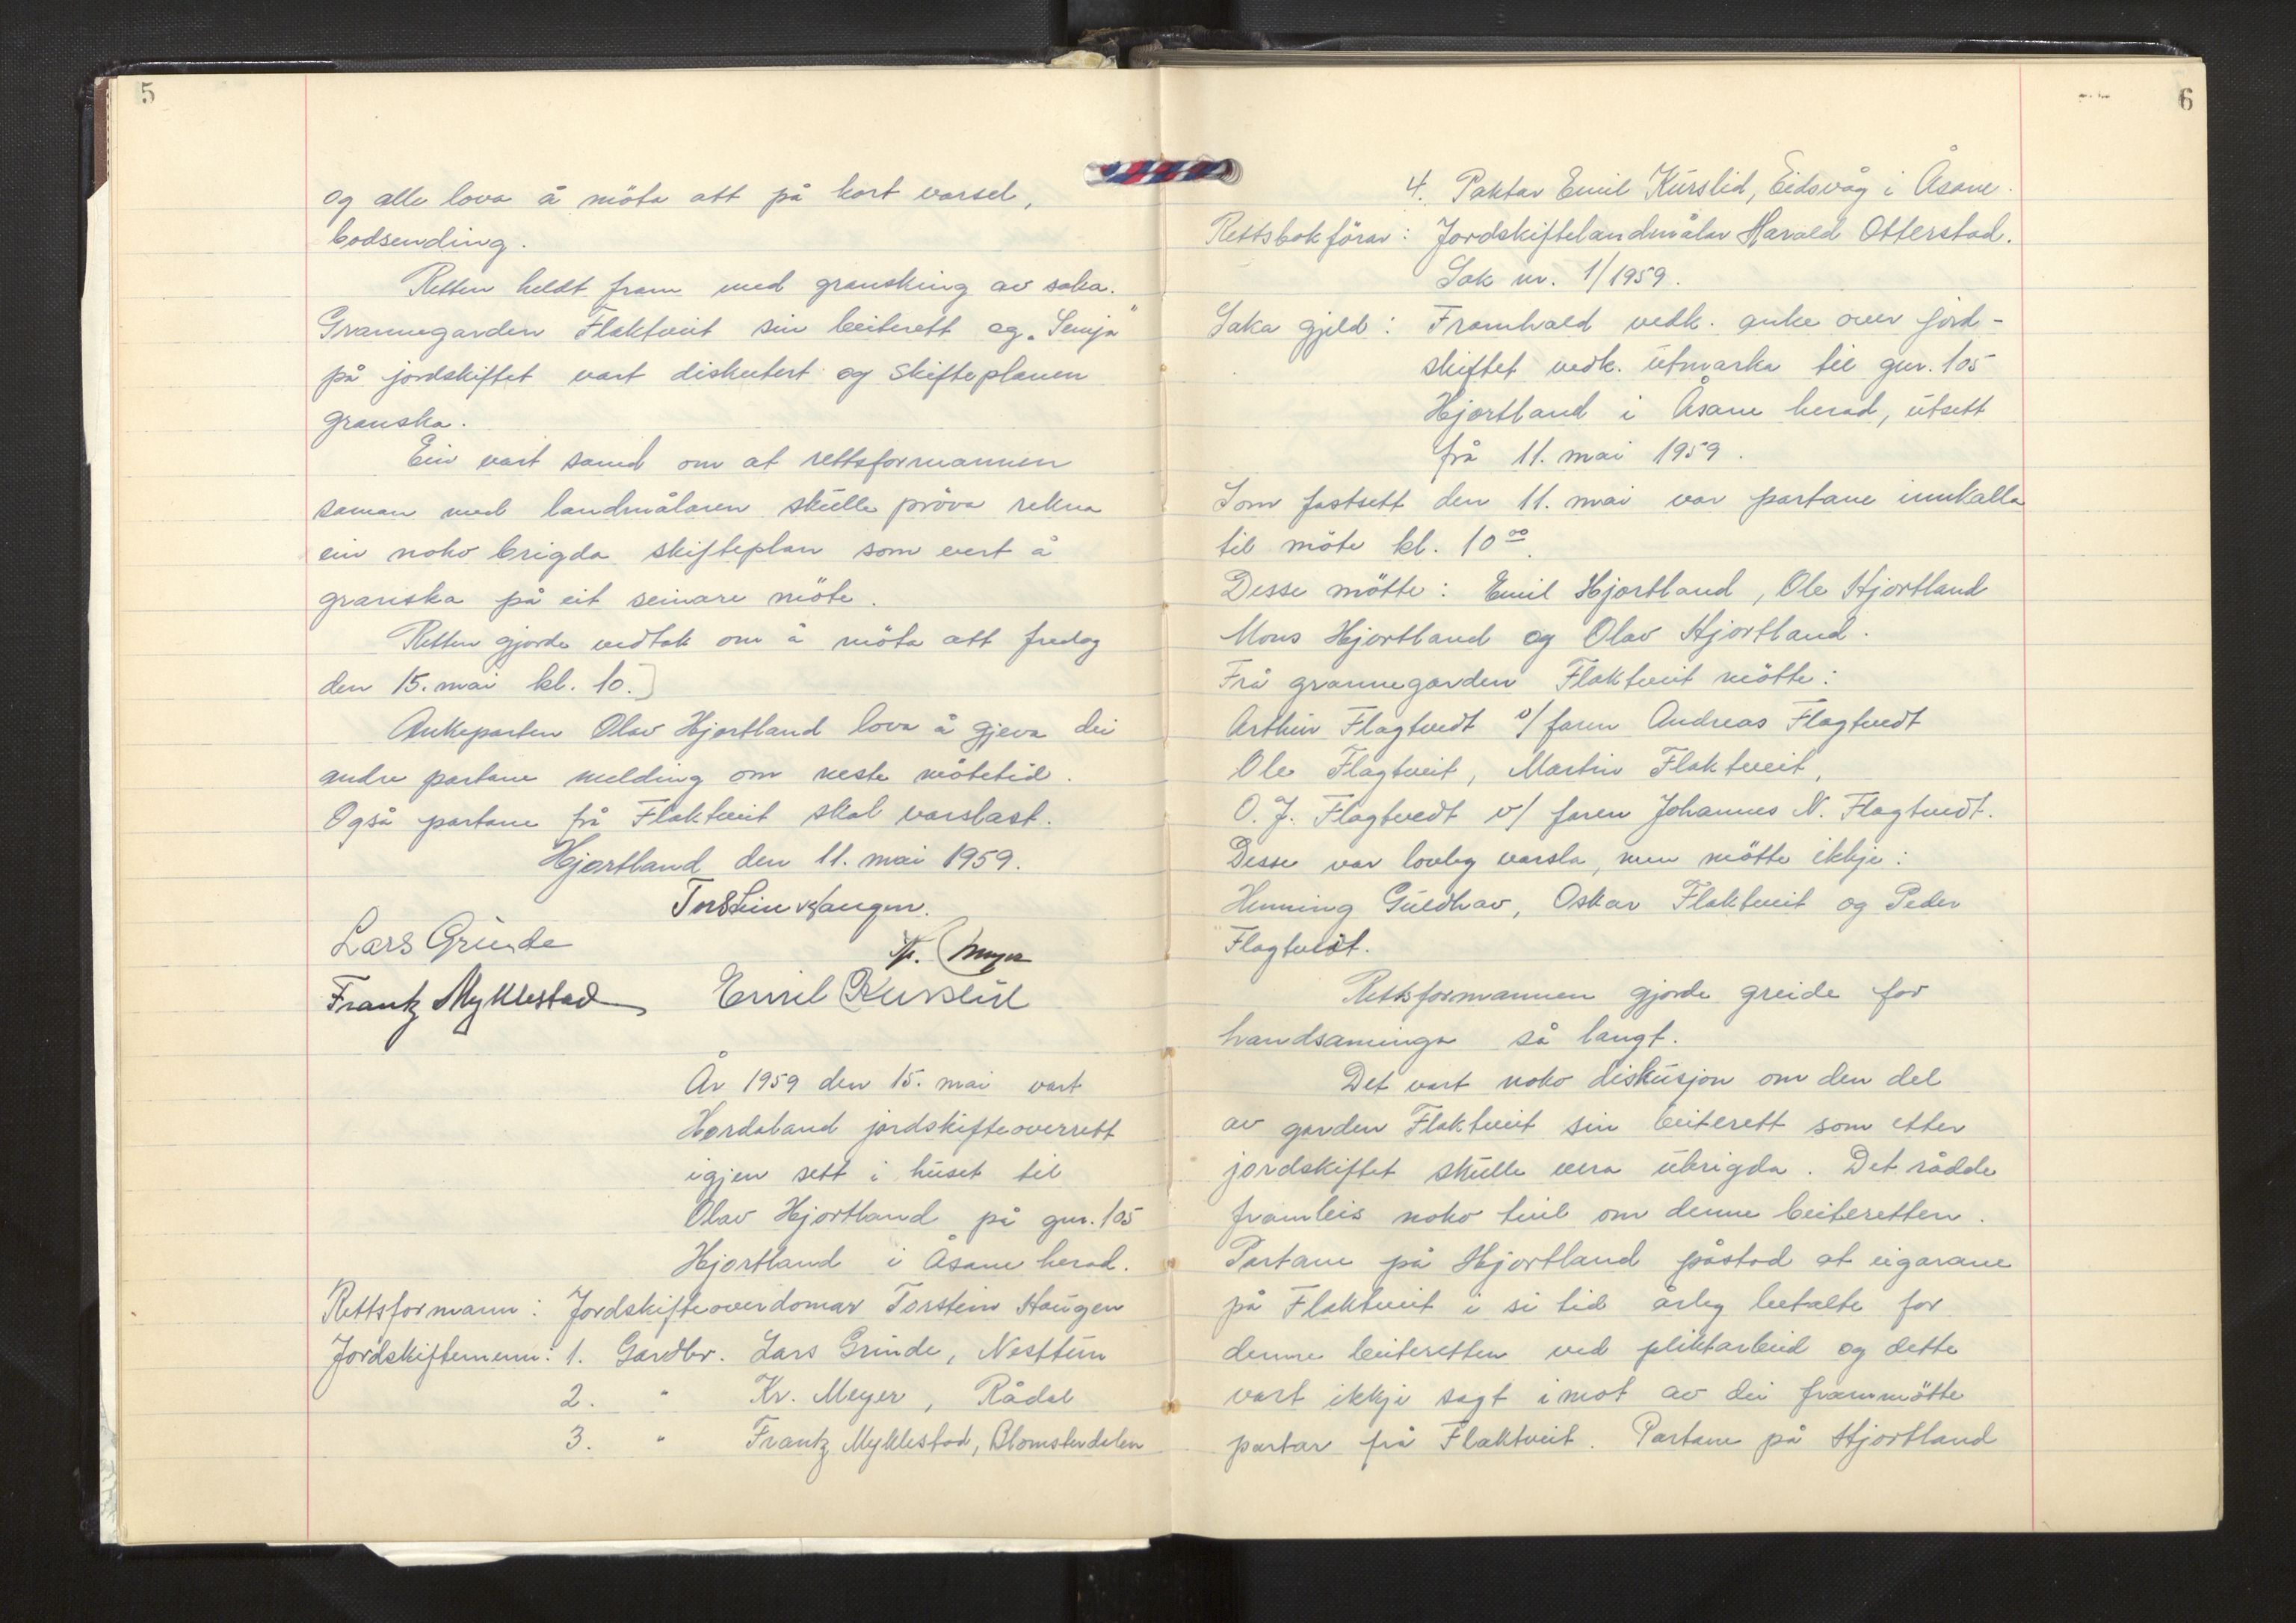 5
og alle lova å möta att på kort varsel,
bodsending.
Retten heldt fram med gransking av saka.
Grannegarden Flaktveit sin beiterett og „Semja"
på jordskiftet vart diskutert og skifteplanen
granska.
Ein vart samd om at rettsformannen
saman med landmålaren skulle pröva rekna
ein noko brigda skifteplan som vert å
granska på eit seinare möte.
Retten gjorde vedtak om å möta att fredag
den 15. mai kl. 10.]
Ankeparten Olav Hjortland lova å gjeva dei
andre partane melding om neste mötetid.
Også partane frå Flaktveit skal varslast.
Hjortland den 11. mai 1959.
Torstein Haugen.
Lars Grinde
Kr. Meyer
Frantz Myklestad Emil Kurslid
År 1959 den 15. mai vart
Hordaland jordskifteoverrett
igjen sett i huset til
Olav Hjortland på gnr. 105
Hjortland i Åsane herad.
Rettsformann: Jordskifteoverdomar Torstein Haugen
Jordskiftemenn: 1. Gardbr. Lars Grinde, Nesttun
2. " Kr. Meyer, Rådal
3. " Frantz Myklestad, Blomsterdalen
6
4. Paktar Emil Kurslid, Eidsvåg i Åsane.
Rettsbokförar: Jordskiftelandmålar Harald Otterstad.
Sak nr. 1/1959.
Saka gjeld: Framhald vedk. anke over jord-
skiftet vedk. utmarka til gnr. 105
Hjortland i Åsane herad, utsett
frå 11. mai 1959.
Som fastsett den 11. mai var partane innkalla
til möte kl. 10⁰⁰.
Desse mötte: Emil Hjortland, Ole Hjortland
Mons Hjortland og Olav Hjortland.
Frå grannegarden Flaktveit mötte:
Arthur Flagtvedt v/ faren Andreas Flagtvedt
Ole Flagtveit, Martin Flaktveit,
O. J. Flagtvedt v/ faren Johannes N. Flagtvedt.
Desse var lovleg varsla, men mötte ikkje:
Henning Guldhav, Oskar Flaktveit og Peder
Flagtvedt.
Rettsformannen gjorde greide for
handsaminga så langt.
Det vart noko diskusjon om den del
av garden Flaktveit sin beiterett som etter
jordskiftet skulle vera ubrigda. Det rådde
framleis noko tvil om denne beiteretten.
Partane på Hjortland påstod at eigarane
på Flaktveit i si tid årleg betalte for
denne beiteretten ved pliktarbeid og dette
vart ikkje sagt imot av dei frammötte
partar frå Flaktveit. Partane på Hjortland